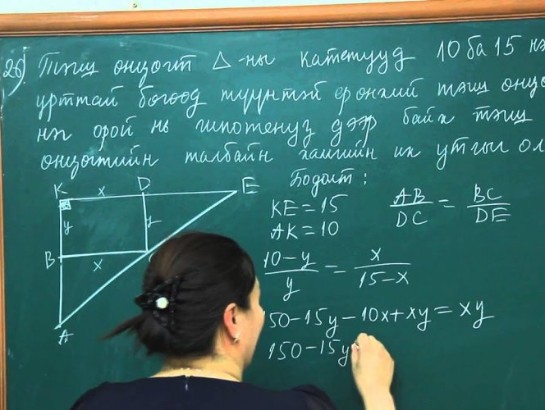 26) Тэгш өнцөгт △-ны катетууд 10 ба 15 нэ
урттай бөгөөд түүнтэй ерөнхий тэгш өнцө
нэг орой нь гипотенуз дээр байх тэгш
өнцөгтийн талбайн хамгийн их утгыг ол
Бодолт:
K x D E
y y
B x
A
KE = 15
AK = 10
AB/DC = BC/DE
10-y/y = x/15-x
150-15y-10x+xy = xy
150-15y